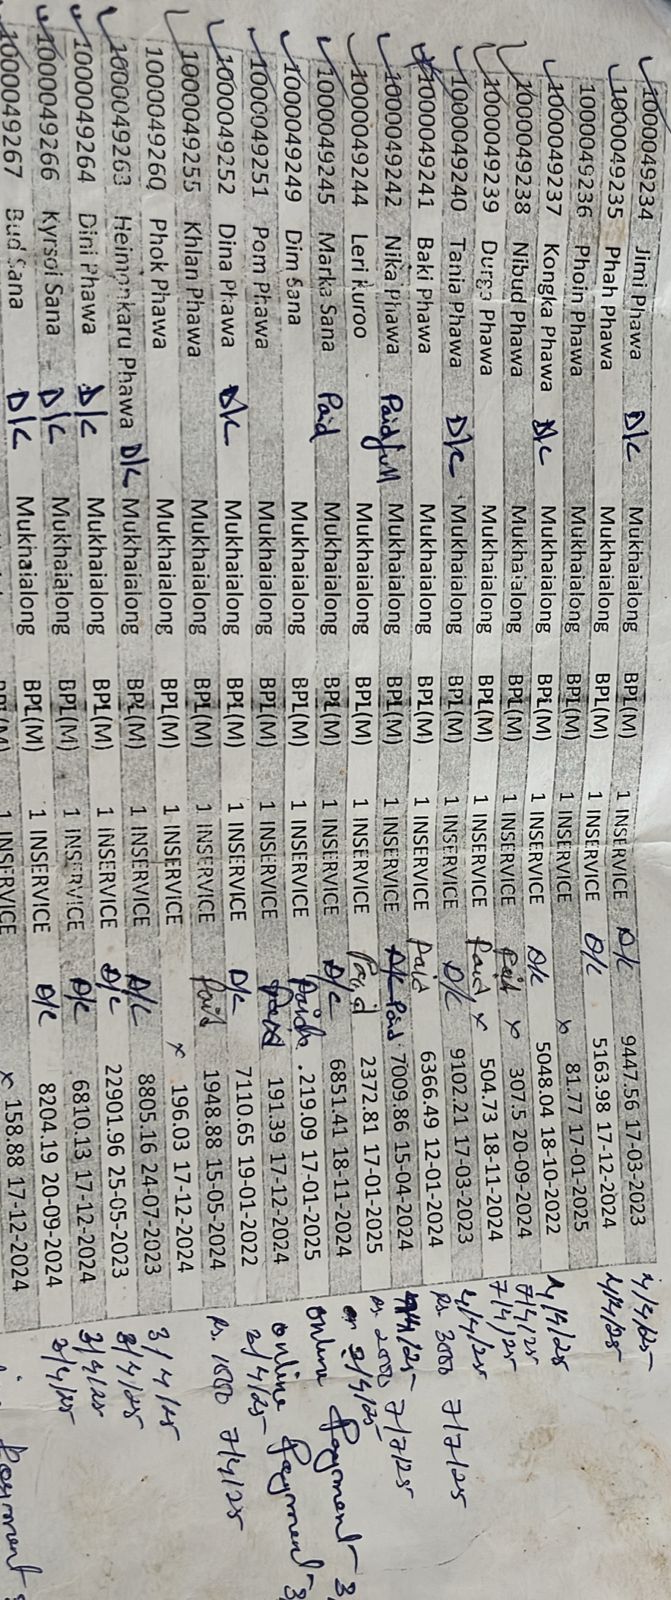 1000049234 Jimi Phawa D/C Mukhaialong BPL(M) 1 INSERVICE D/C 9447.56 17-03-2023 4/4/25
1000049235 Phah Phawa Mukhaialong BPL(M) 1 INSERVICE D/C 5163.98 17-12-2024 4/4/25
1000049236 Phoin Phawa Mukhaialong BPL(M) 1 INSERVICE x 81.77 17-01-2025
1000049237 Kongka Phawa D/C Mukhaialong BPL(M) 1 INSERVICE D/C 5048.04 18-10-2022 4/4/25
1000049238 Nibud Phawa Mukhaialong BPL(M) 1 INSERVICE Paid x 307.5 20-09-2024 7/4/25
1000049239 Durga Phawa Mukhaialong BPL(M) 1 INSERVICE Paid x 504.73 18-11-2024 7/4/25
1000049240 Tania Phawa D/C Mukhaialong BPL(M) 1 INSERVICE D/C 9102.21 17-03-2023 4/4/25
1000049241 Baki Phawa Mukhaialong BPL(M) 1 INSERVICE Paid 6366.49 12-01-2024 Rs. 3000 7/7/25
1000049242 Nika Phawa Paid full Mukhaialong BPL(M) 1 INSERVICE D/C Paid 7009.86 15-04-2024 Rs. 2000 7/7/25
1000049244 Leri Kuroo Mukhaialong BPL(M) 1 INSERVICE Paid 2372.81 17-01-2025
1000049245 Marka Sana Paid Mukhaialong BPL(M) 1 INSERVICE D/C 6851.41 18-11-2024 3/4/25
1000049249 Dim Sana Mukhaialong BPL(M) 1 INSERVICE 219.09 17-01-2025 Online Payment - 3
1000049251 Pom Phawa Mukhaialong BPL(M) 1 INSERVICE Paid 191.39 17-12-2024 Online Payment - 3
1000049252 Dina Phawa D/C Mukhaialong BPL(M) 1 INSERVICE D/C 7110.65 19-01-2022 3/4/25
1000049255 Khlan Phawa Mukhaialong BPL(M) 1 INSERVICE Paid 1948.88 15-05-2024 Rs. 1000 7/4/25
1000049260 Phok Phawa Mukhaialong BPL(M) 1 INSERVICE x 196.03 17-12-2024
1000049263 Heimonkaru Phawa D/C Mukhaialong BPL(M) 1 INSERVICE D/C 8805.16 24-07-2023 3/4/25
1000049264 Dini Phawa D/C Mukhaialong BPL(M) 1 INSERVICE D/C 22901.96 25-05-2023 3/4/25
1000049266 Kyrsoi Sana D/C Mukhaialong BPL(M) 1 INSERVICE D/C 6810.13 17-12-2024 3/4/25
1000049267 Bud Sana D/C Mukhaialong BPL(M) 1 INSERVICE D/C 8204.19 20-09-2024 3/4/25
1 INSERVICE x 158.88 17-12-2024 Payment